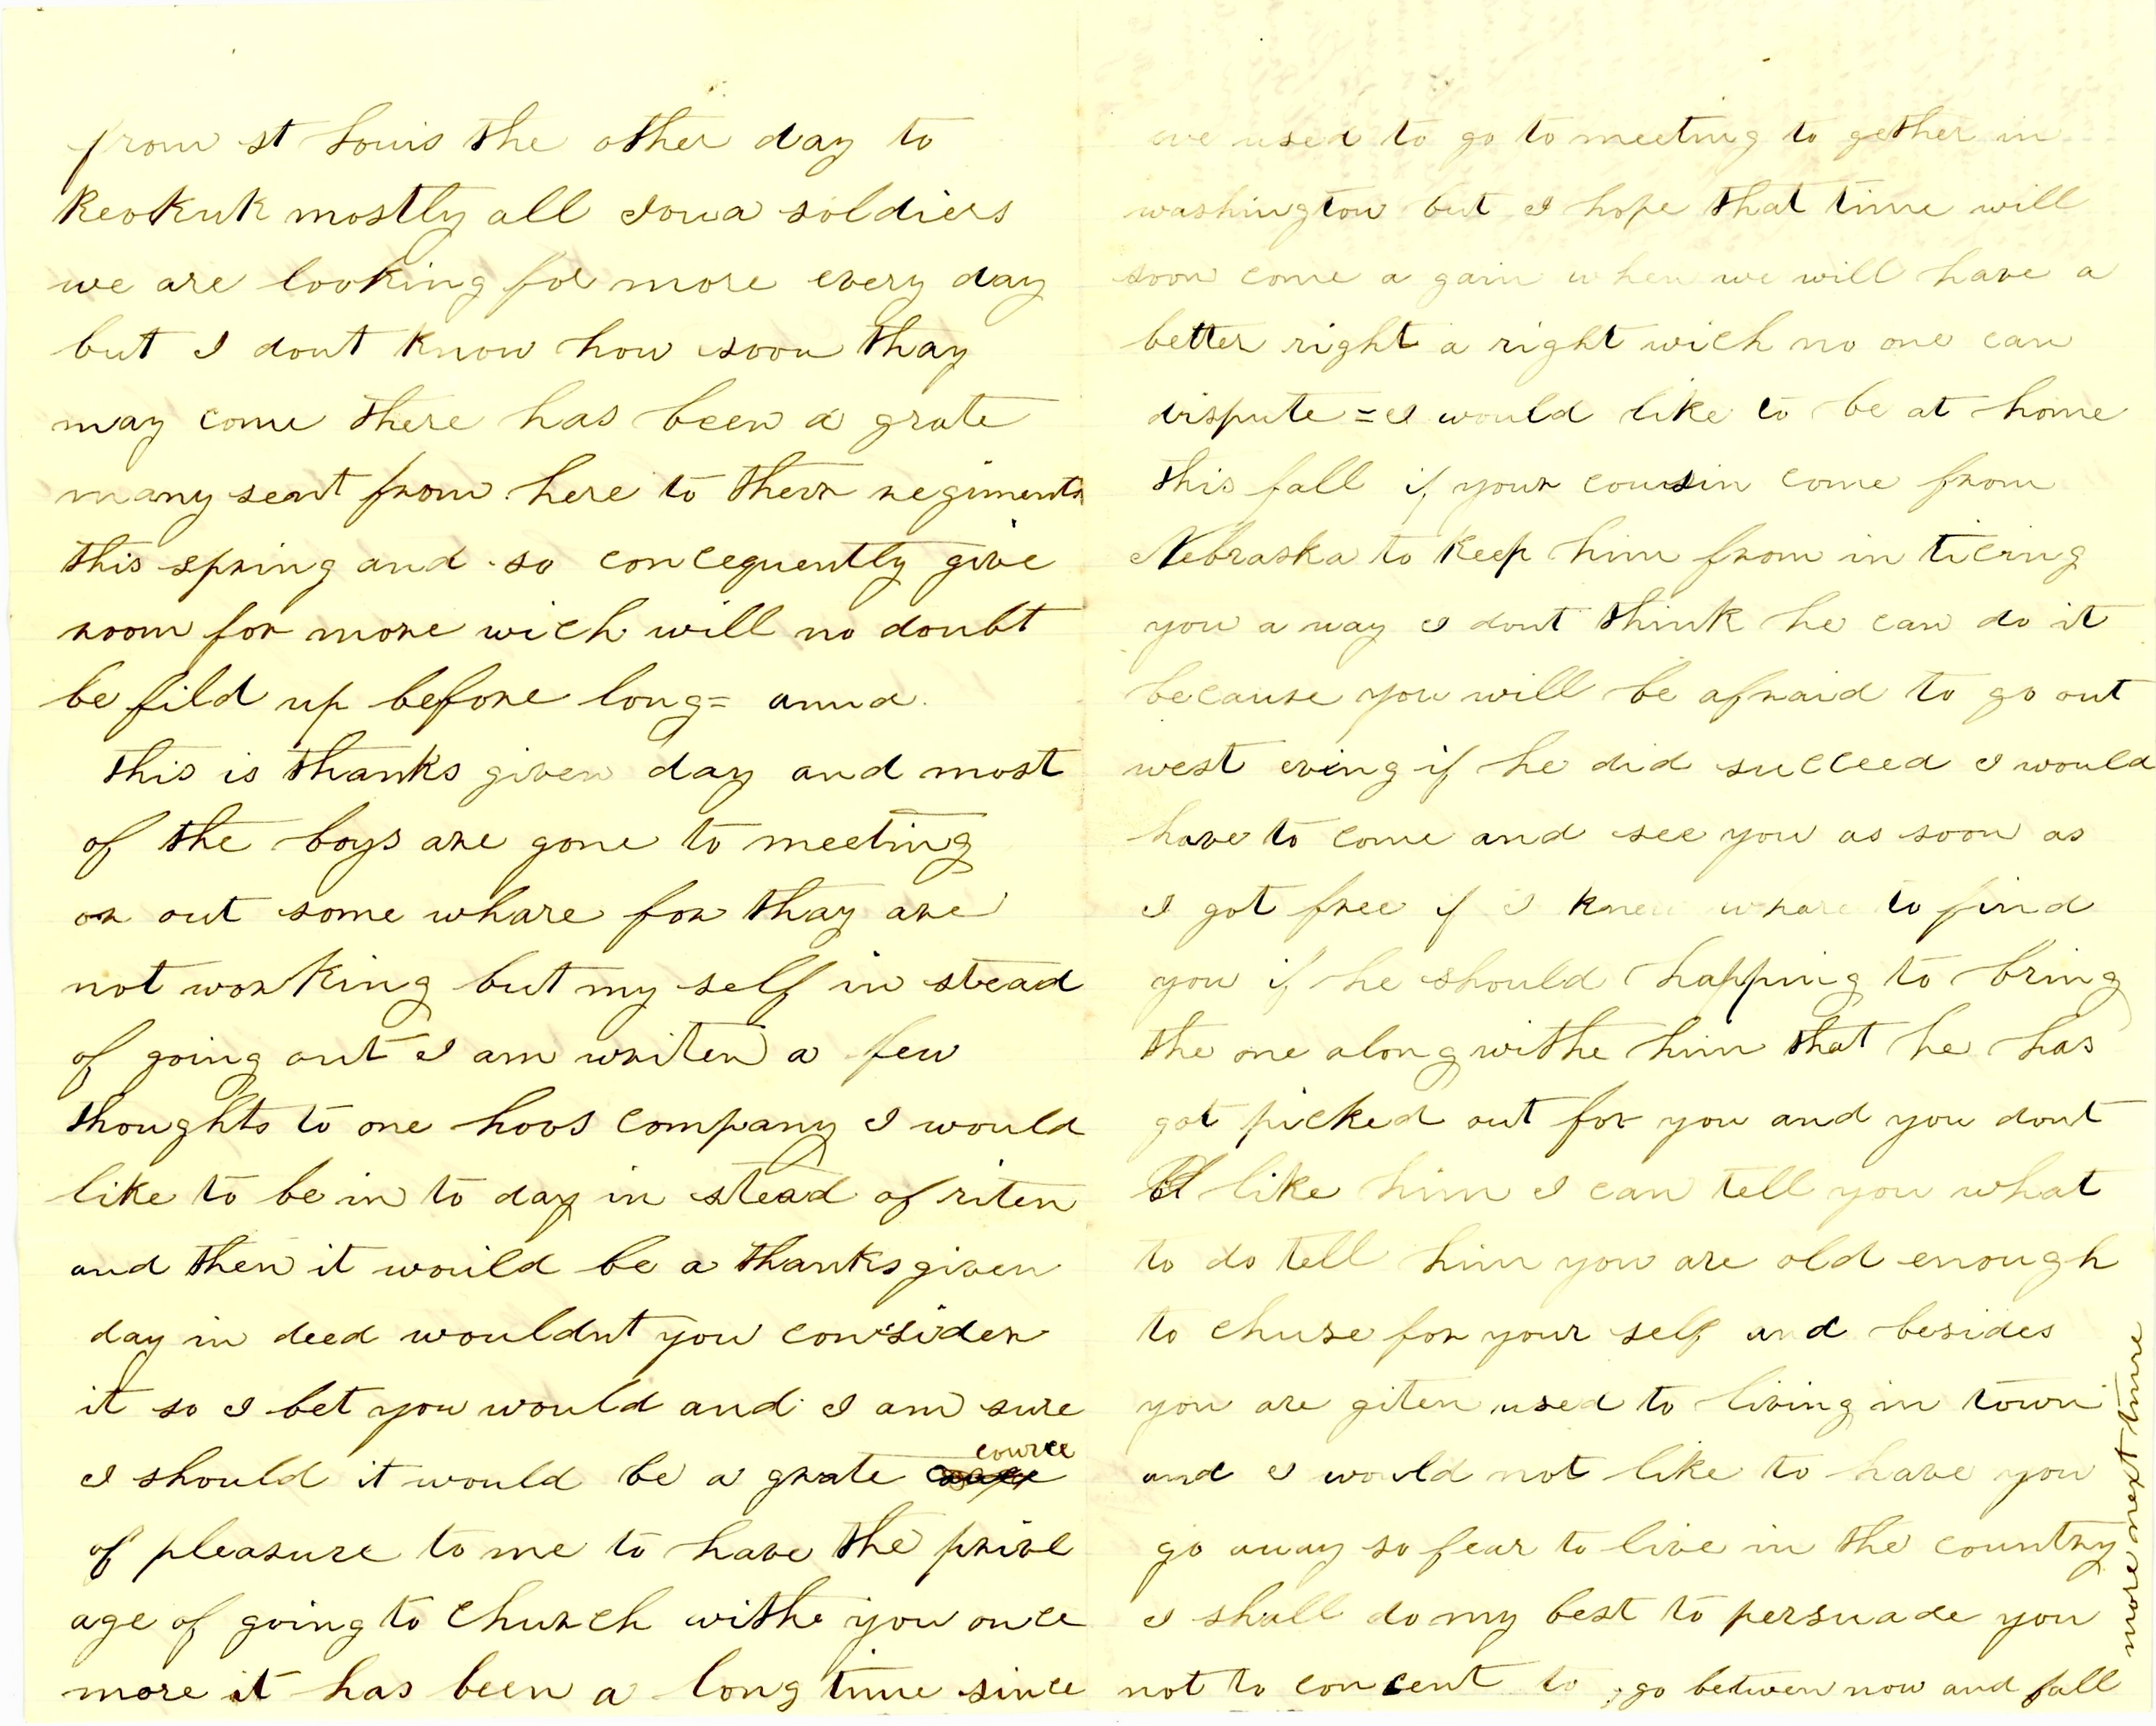 from st Louis the other day to
Keokuk mostly all Iowa soldiers
we are looking for more every day
but I dont know how soon thay
may come there has been a grate
many sent from here to their regiments
this spring and so concequently give
room for more wich will no doubt
be fild up before long= anna
this is thanks given day and most
of the boys are gone to meeting
or out some whare for thay are
not working but my self in stead
of going out I am writen a few
thoughts to one hoos company I would
like to be in to day in stead of riten
and then it would be a thanks given
day in deed wouldnt you consider
it so I bet you would and I am sure
I should it would be a grate cource
of pleasure to me to have the privl
age of going to church withe you once
more it has been a long time since
we used to go to meeting to gether in
washington but I hope that time will
soon come a gain when we will have a
better right a right wich no one can
dispute = I would like to be at home
this fall if your cousin come from
Nebraska to keep him from in ticing
you a way I dont think he can do it
because you will be afraid to go out
west eving if he did succeed I would
have to come and see you as soon as
I got free if I knew whare to find
you if he should happing to bring
the one along withe him that he has
got picked out for you and you dont
like him I can tell you what
to do tell him you are old enough
to chuse for your self and besides
you are giten used to living in town
and I would not like to have you
go away so fear to live in the country
I shall do my best to persuade you
not to concent to go between now and fall
more next time